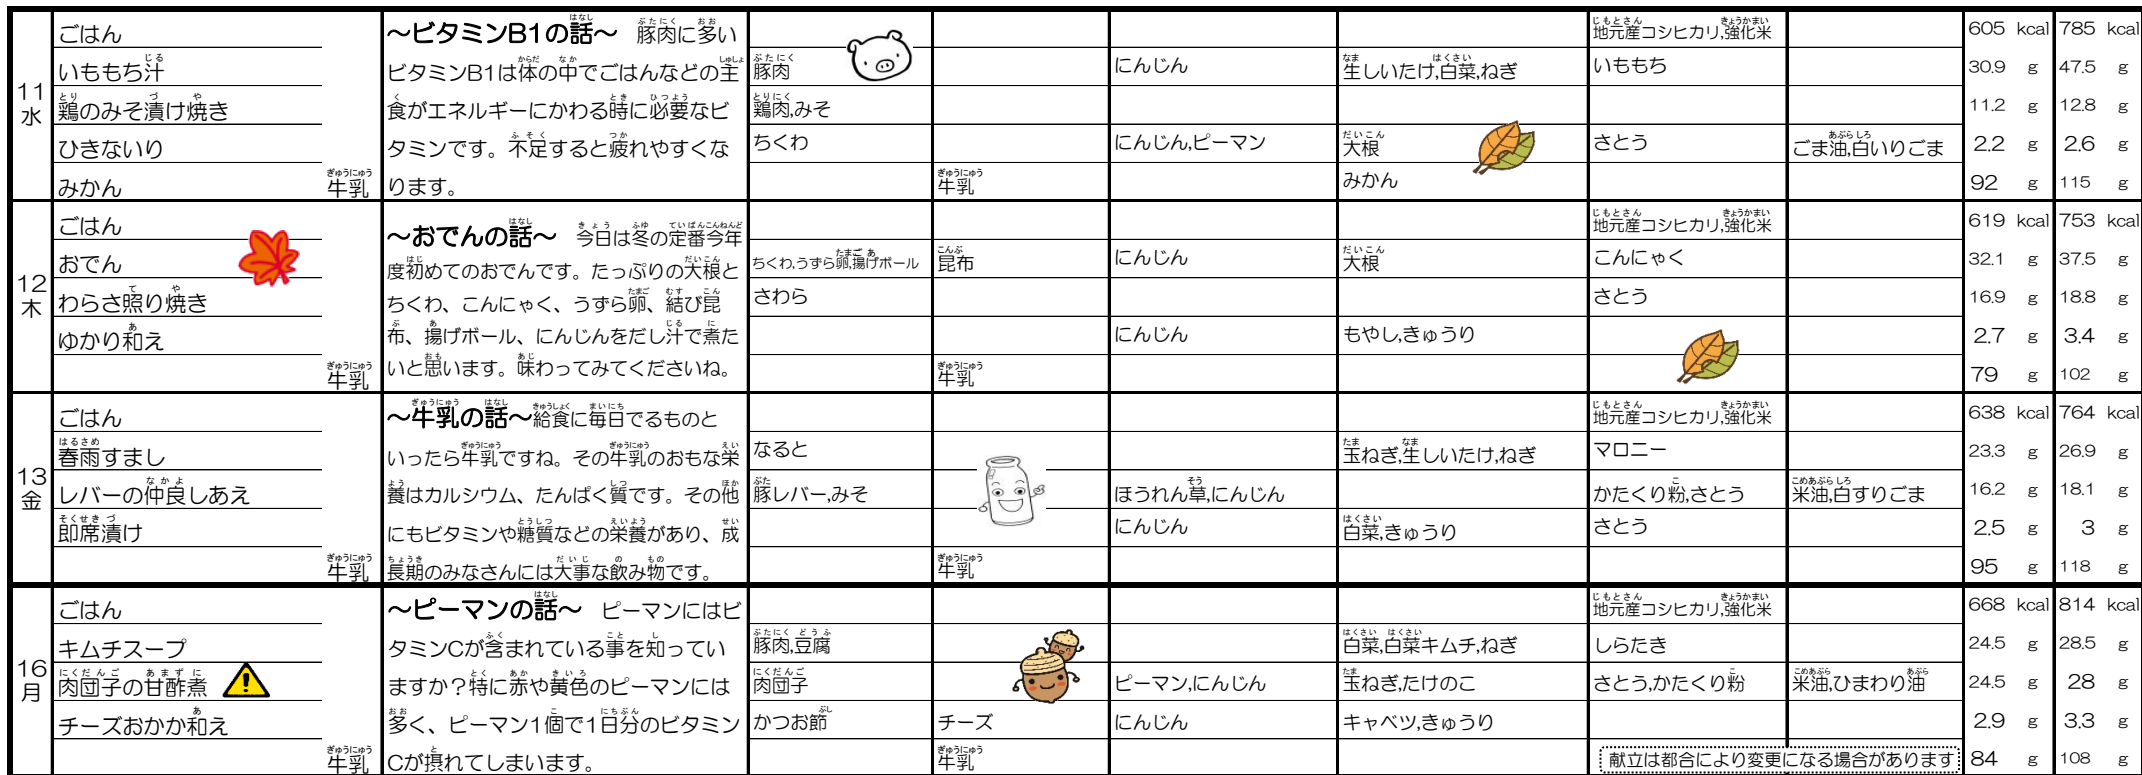 11
水
ごはん
いももち汁
鶏のみそ漬け焼き
ひきないり
みかん
牛乳
～ビタミンB1の話～ 豚肉に多い
ビタミンB1は体の中でごはんなどの主
食がエネルギーにかわる時に必要なビ
タミンです。不足すると疲れやすくな
ります。
地元産コシヒカリ,強化米
605 kcal 785 kcal
豚肉 にんじん 生しいたけ,白菜,ねぎ いももち
30.9 g 47.5 g
鶏肉,みそ
11.2 g 12.8 g
ちくわ にんじん,ピーマン 大根 さとう ごま油,白いりごま
2.2 g 2.6 g
牛乳 みかん
92 g 115 g
12
木
ごはん
おでん
わらさ照り焼き
ゆかり和え
牛乳
～おでんの話～ 今日は冬の定番今年
度初めてのおでんです。たっぷりの大根と
ちくわ、こんにゃく、うずら卵、結び昆
布、揚げボール、にんじんをだし汁で煮た
いと思います。味わってみてくださいね。
地元産コシヒカリ,強化米
619 kcal 753 kcal
ちくわ,うずら卵,揚げボール 昆布 にんじん 大根 こんにゃく
32.1 g 37.5 g
さわら さとう
16.9 g 18.8 g
にんじん もやし,きゅうり
2.7 g 3.4 g
牛乳
79 g 102 g
13
金
ごはん
春雨すまし
レバーの仲良しあえ
即席漬け
牛乳
～牛乳の話～給食に毎日でるものと
いったら牛乳ですね。その牛乳のおもな栄
養はカルシウム、たんぱく質です。その他
にもビタミンや糖質などの栄養があり、成
長期のみなさんには大事な飲み物です。
地元産コシヒカリ,強化米
638 kcal 764 kcal
なると 玉ねぎ,生しいたけ,ねぎ マロニー
23.3 g 26.9 g
豚レバー,みそ ほうれん草,にんじん かたくり粉,さとう 米油,白すりごま
16.2 g 18.1 g
にんじん 白菜,きゅうり さとう
2.5 g 3 g
牛乳
95 g 118 g
16
月
ごはん
キムチスープ
肉団子の甘酢煮
チーズおかか和え
牛乳
～ピーマンの話～ ピーマンにはビ
タミンCが含まれている事を知ってい
ますか？特に赤や黄色のピーマンには
多く、ピーマン1個で1日分のビタミン
Cが摂れてしまいます。
地元産コシヒカリ,強化米
668 kcal 814 kcal
豚肉,豆腐 白菜,白菜キムチ,ねぎ しらたき
24.5 g 28.5 g
肉団子 ピーマン,にんじん 玉ねぎ,たけのこ さとう,かたくり粉 米油,ひまわり油
24.5 g 28 g
かつお節 チーズ にんじん キャベツ,きゅうり
2.9 g 3.3 g
牛乳
献立は都合により変更になる場合があります
84 g 108 g